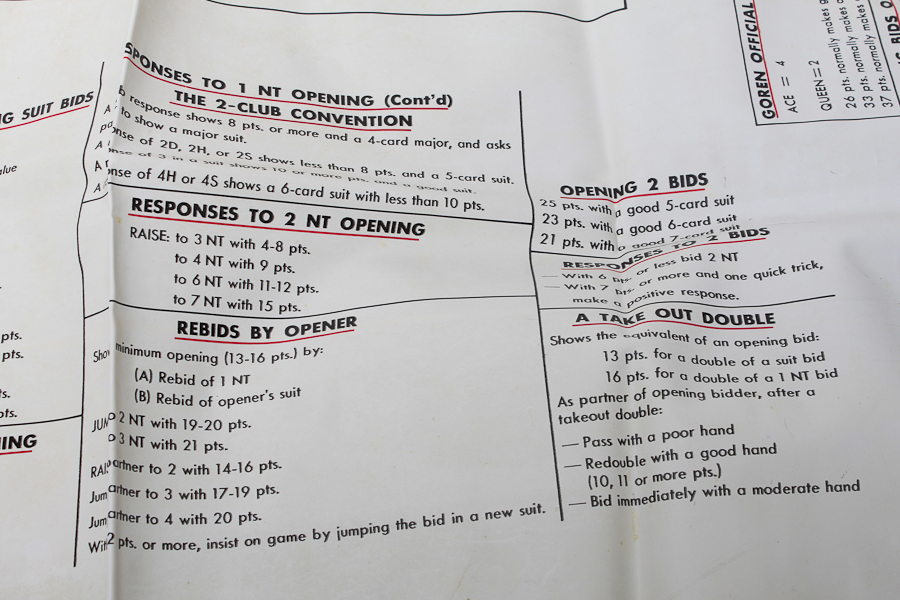 G SUIT BIDS
alue
pts.
pts.
ts.
pts.
ING
SPONSES TO 1 NT OPENING (Cont'd)
THE 2-CLUB CONVENTION
response shows 8 pts. or more and a 4-card major, and asks
to show a major suit.
nse of 2D, 2H, or 2S shows less than 8 pts. and a 5-card suit.
nse of 3 in a suit shows 10 or more pts. and a good suit.
nse of 4H or 4S shows a 6-card suit with less than 10 pts.
RESPONSES TO 2 NT OPENING
RAISE: to 3 NT with 4-8 pts.
to 4 NT with 9 pts.
to 6 NT with 11-12 pts.
to 7 NT with 15 pts.
REBIDS BY OPENER
Show minimum opening (13-16 pts.) by:
(A) Rebid of 1 NT
(B) Rebid of opener's suit
2 NT with 19-20 pts.
3 NT with 21 pts.
artner to 2 with 14-16 pts.
Jum artner to 3 with 17-19 pts.
Jum artner to 4 with 20 pts.
2 pts. or more, insist on game by jumping the bid in a new suit.
GOREN OFFICIAL
ACE = 4
QUEEN = 2
26 pts. normally makes
33 pts. normally makes
37 pts. normally makes
BIDS O
OPENING 2 BIDS
25 pts. with a good 5-card suit
23 pts. with a good 6-card suit
21 pts. with a good 7-card suit
RESPONSES TO 2 BIDS
— With 6 pts. or less bid 2 NT
— With 7 pts. or more and one quick trick,
make a positive response.
A TAKE OUT DOUBLE
Shows the equivalent of an opening bid:
13 pts. for a double of a suit bid
16 pts. for a double of a 1 NT bid
As partner of opening bidder, after a
takeout double:
— Pass with a poor hand
— Redouble with a good hand
(10, 11 or more pts.)
— Bid immediately with a moderate hand